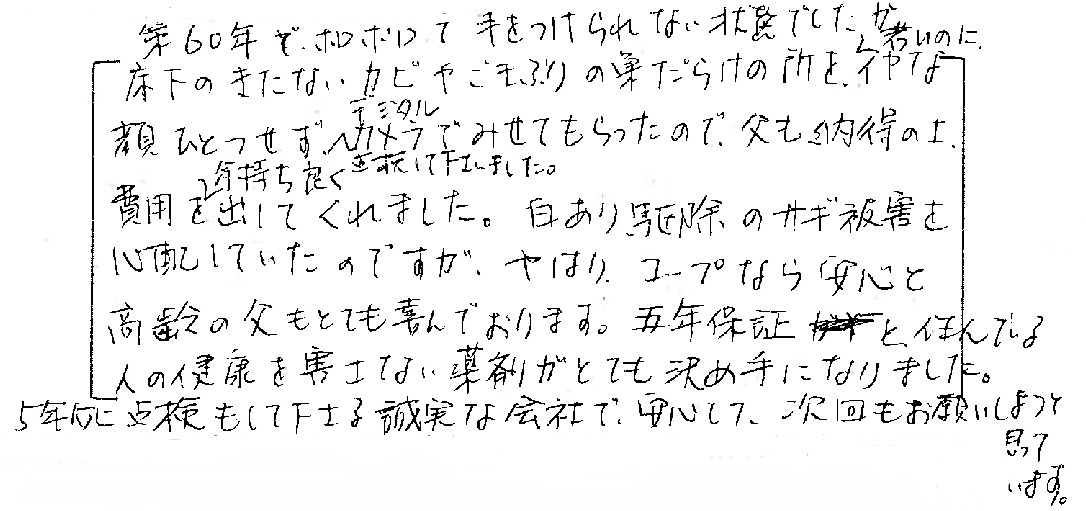 築60年で、ボロボロで手をつけられない状態でしたが、若いのに、
床下のきたないカビやごきぶりの巣だらけの所を、イヤな
顔ひとつせず、デジタルカメラでみせてもらったので、父も納得の上、
気持ち良く点検して下さいました。
費用を出してくれました。白あり駆除のサギ被害を
心配していたのですが、やはり、コープなら安心と
高齢の父もとても喜んでおります。五年保証と、住んでいる
人の健康を害さない薬剤がとても決め手になりました。
5年内に点検もして下さる誠実な会社で、安心して、次回もお願いしようと
思って
います。